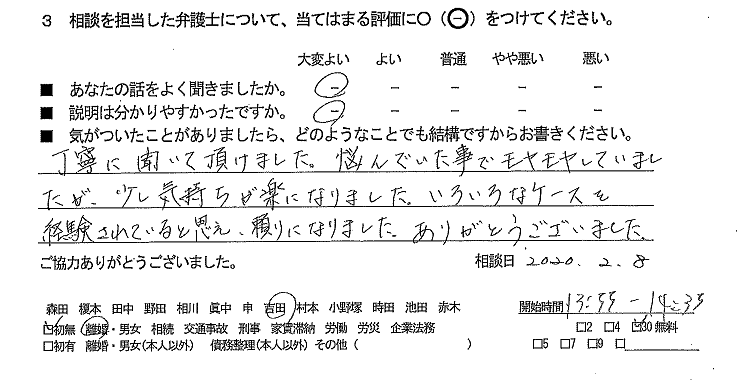 3 相談を担当した弁護士について、当てはまる評価に○（⊖）をつけてください。
大変よい よい 普通 やや悪い 悪い
■ あなたの話をよく聞きましたか。 － － － － －
■ 説明は分かりやすかったですか。 － － － － －
■ 気がついたことがありましたら、どのようなことでも結構ですからお書きください。
丁寧に聞いて頂けました。悩んでいた事でモヤモヤしていまし
たが、少し気持ちが楽になりました。いろいろなケースを
経験されていると思え、頼りになりました。ありがとうございました。
ご協力ありがとうございました。 相談日 2020.2.8
森田 榎本 田中 野田 相川 眞中 申 吉田 村本 小野塚 時田 池田 赤木 開始時間 13:55－14:35
☑初無 離婚・男女 相続 交通事故 刑事 家賃滞納 労働 労災 企業法務 □2 □4 ☑30 無料
□初有 離婚・男女(本人以外) 債務整理(本人以外) その他 ( ) □5 □7 □9 □